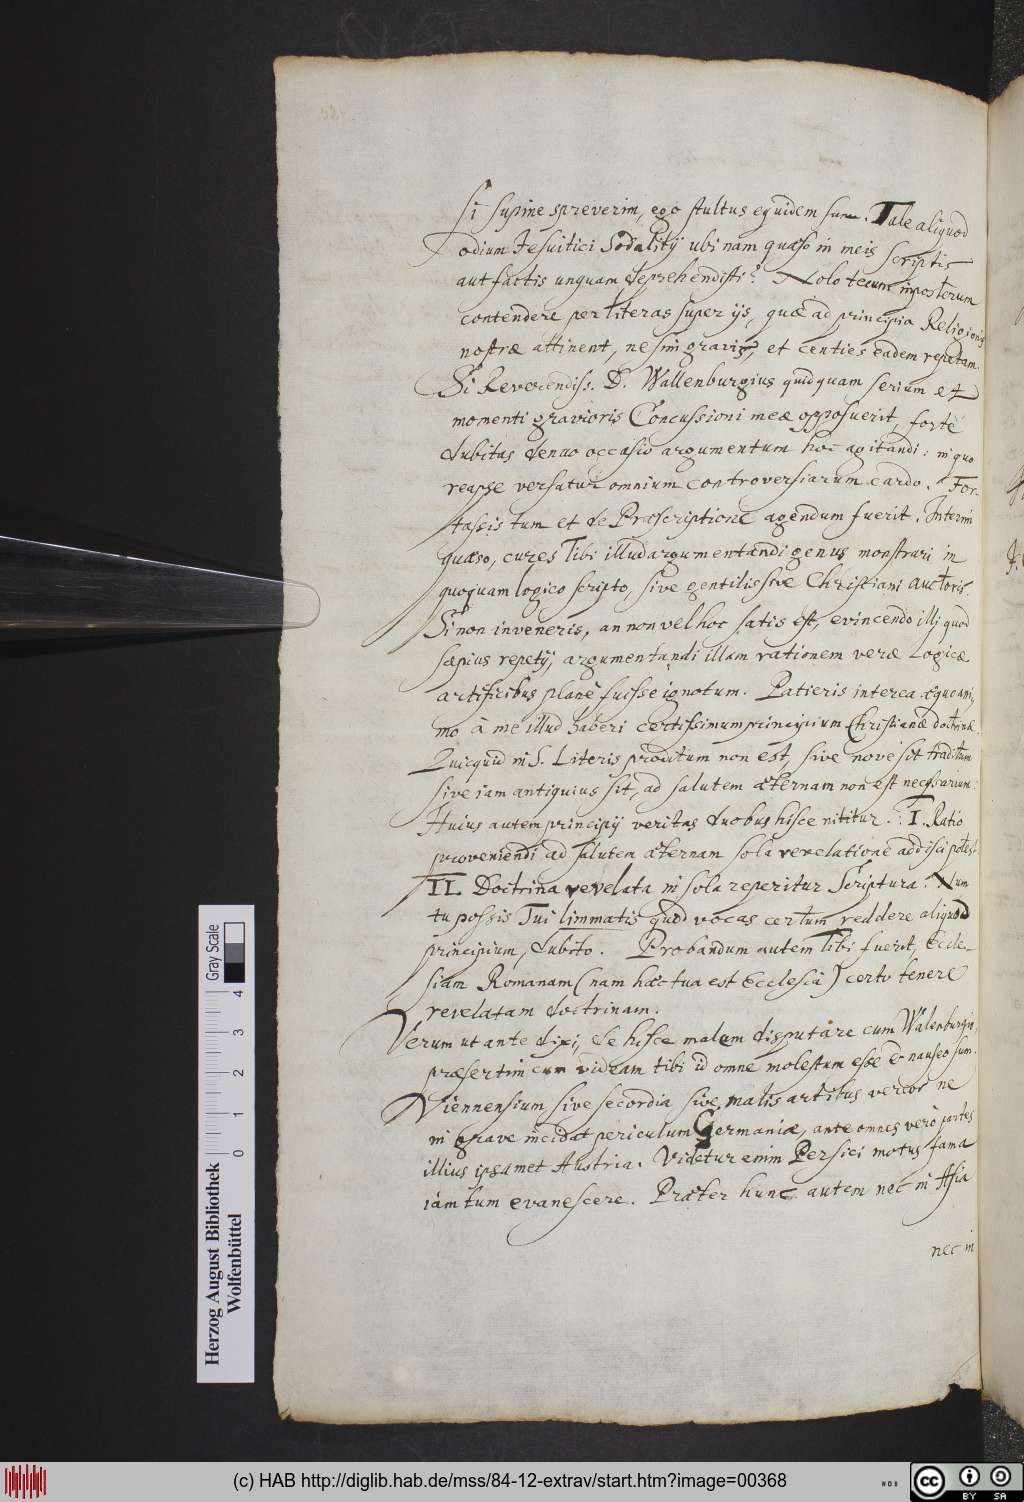 Si supine spreverim, ego stultus equidem sum. Tale aliquod
odium Jesuitici Sodalitij ubi nam quæso in meis scriptis
aut factis unquam deprehendisti? Nolo tecum inposterum
contendere per literas super ijs, quæ ad principia Religionis
nostræ attinent, ne sim gravis, et centies eadem repetam.
Si Reverendiss. D. Wallenburgius quidquam serium et
momenti gravioris Concussioni meæ opposuerit, forte
dubitas denuo occasio argumentum hoc agitandi: in quo
reapse versatur omnium controversiarum cardo. For-
tassis tum et de Præscriptione agendum fuerit. Interim
quæso, cures Tibi illud argumentandi genus monstrari in
quoquam logico scripto, sive gentilis sive Christiani auctoris.
Si non inveneris, an non vel hoc satis est, evincendo illj quod
sæpius repetij, argumentandi illam rationem veræ Logicæ
artificibus planè fuisse ignotum. Patieris interea æquo ani,
mo à me illud haberi certissimum principium Christianæ doctrinæ.
Quicquid in S. Literis proditum non est, sive nove sit traditum
sive iam antiquius sit, ad salutem æternam non est necessarium.
Huius autem principij veritas duobus hisce nititur. I. Ratio
proveniendi ad salutem æternam sola revelatione addisci potest.
II. Doctrina revelata in sola reperitur Scriptura. Num
tu possis Tui limmatis quod vocas certum reddere aliquod
principium, dubito. Probandum autem tibi fuerit, Eccle-
siam Romanam (nam hæc tua est Ecclesia) certo tenere
revelatam doctrinam.
Verum ut ante dixi, de hisce malem disputare cum Walenburgio,
præsertim cum videam tibi id omne molestum esse & nauseosum.
Viennensium sive secordia sive malis artibus vereor ne
in grave incidat periculum Germaniæ, ante omnes verò partes
illius ipsamet Austria. Videtur enim Persici motus fama
iam tum evanescere. Præter hunc autem nec in Asia
nec in
Herzog August Bibliothek
Wolfenbüttel
0 1 2 3 4
Gray Scale
(c) HAB http://diglib.hab.de/mss/84-12-extrav/start.htm?image=00368
cc BY SA